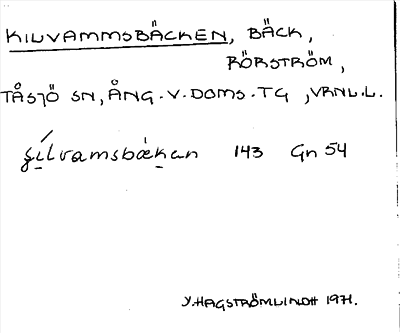 KILVAMMSBÄCKEN, BÄCK,
RÖRSTRÖM,
TÅSJÖ SN, ÅNG.V.DOMS.TG, VRNL.L.
143 Gn 54
Y.HAGSTRÖMLINDH 1971.